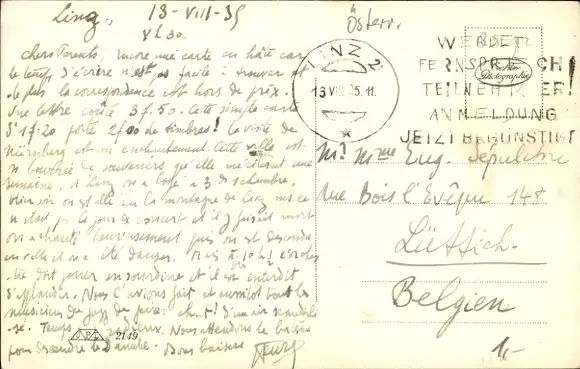 Linz, 13-VIII-35
8h30.
Österr.
Chers Parents, Encore une carte en hâte car
le temps d'écrire n'est pas facile à trouver et
de plus la correspondance est hors de prix.
Une lettre coûte 3f.50. Cette simple carte
porte de timbres! La visite de
Nürnberg est un enchantement Cette ville est
si de souvenirs qu'elle une
semaine. A Linz on a logé à 3 ds chambre.
Hier soir on est allé sur la montagne de Linz mais ce
n'était pas le jour de concert et il y faisait mort
on a chanté heureusement puis on est descendu
en ville et on a été danser. Mais à 10h½ l'orches-
tre doit jouer en sourdine et il est interdit
d'applaudir. Nous l'avions fait et aussitôt tous les
musiciens du jazz de faire: cht! d'un air scandali-
sé. Temps radieux. Nous attendons le bateau
pour descendre le Danube. Bons baisers
2149
LINZ 2
13 VIII 35 11
WERDET
FERNSPRECH
TEILNEHMER!
ANMELDUNG
JETZT BEGÜNSTIGT
Echte
Photographie
Mr Mme Eug. Sépulchre
Rue Bois l'Evêque 148
Lüttich.
Belgien
1,-